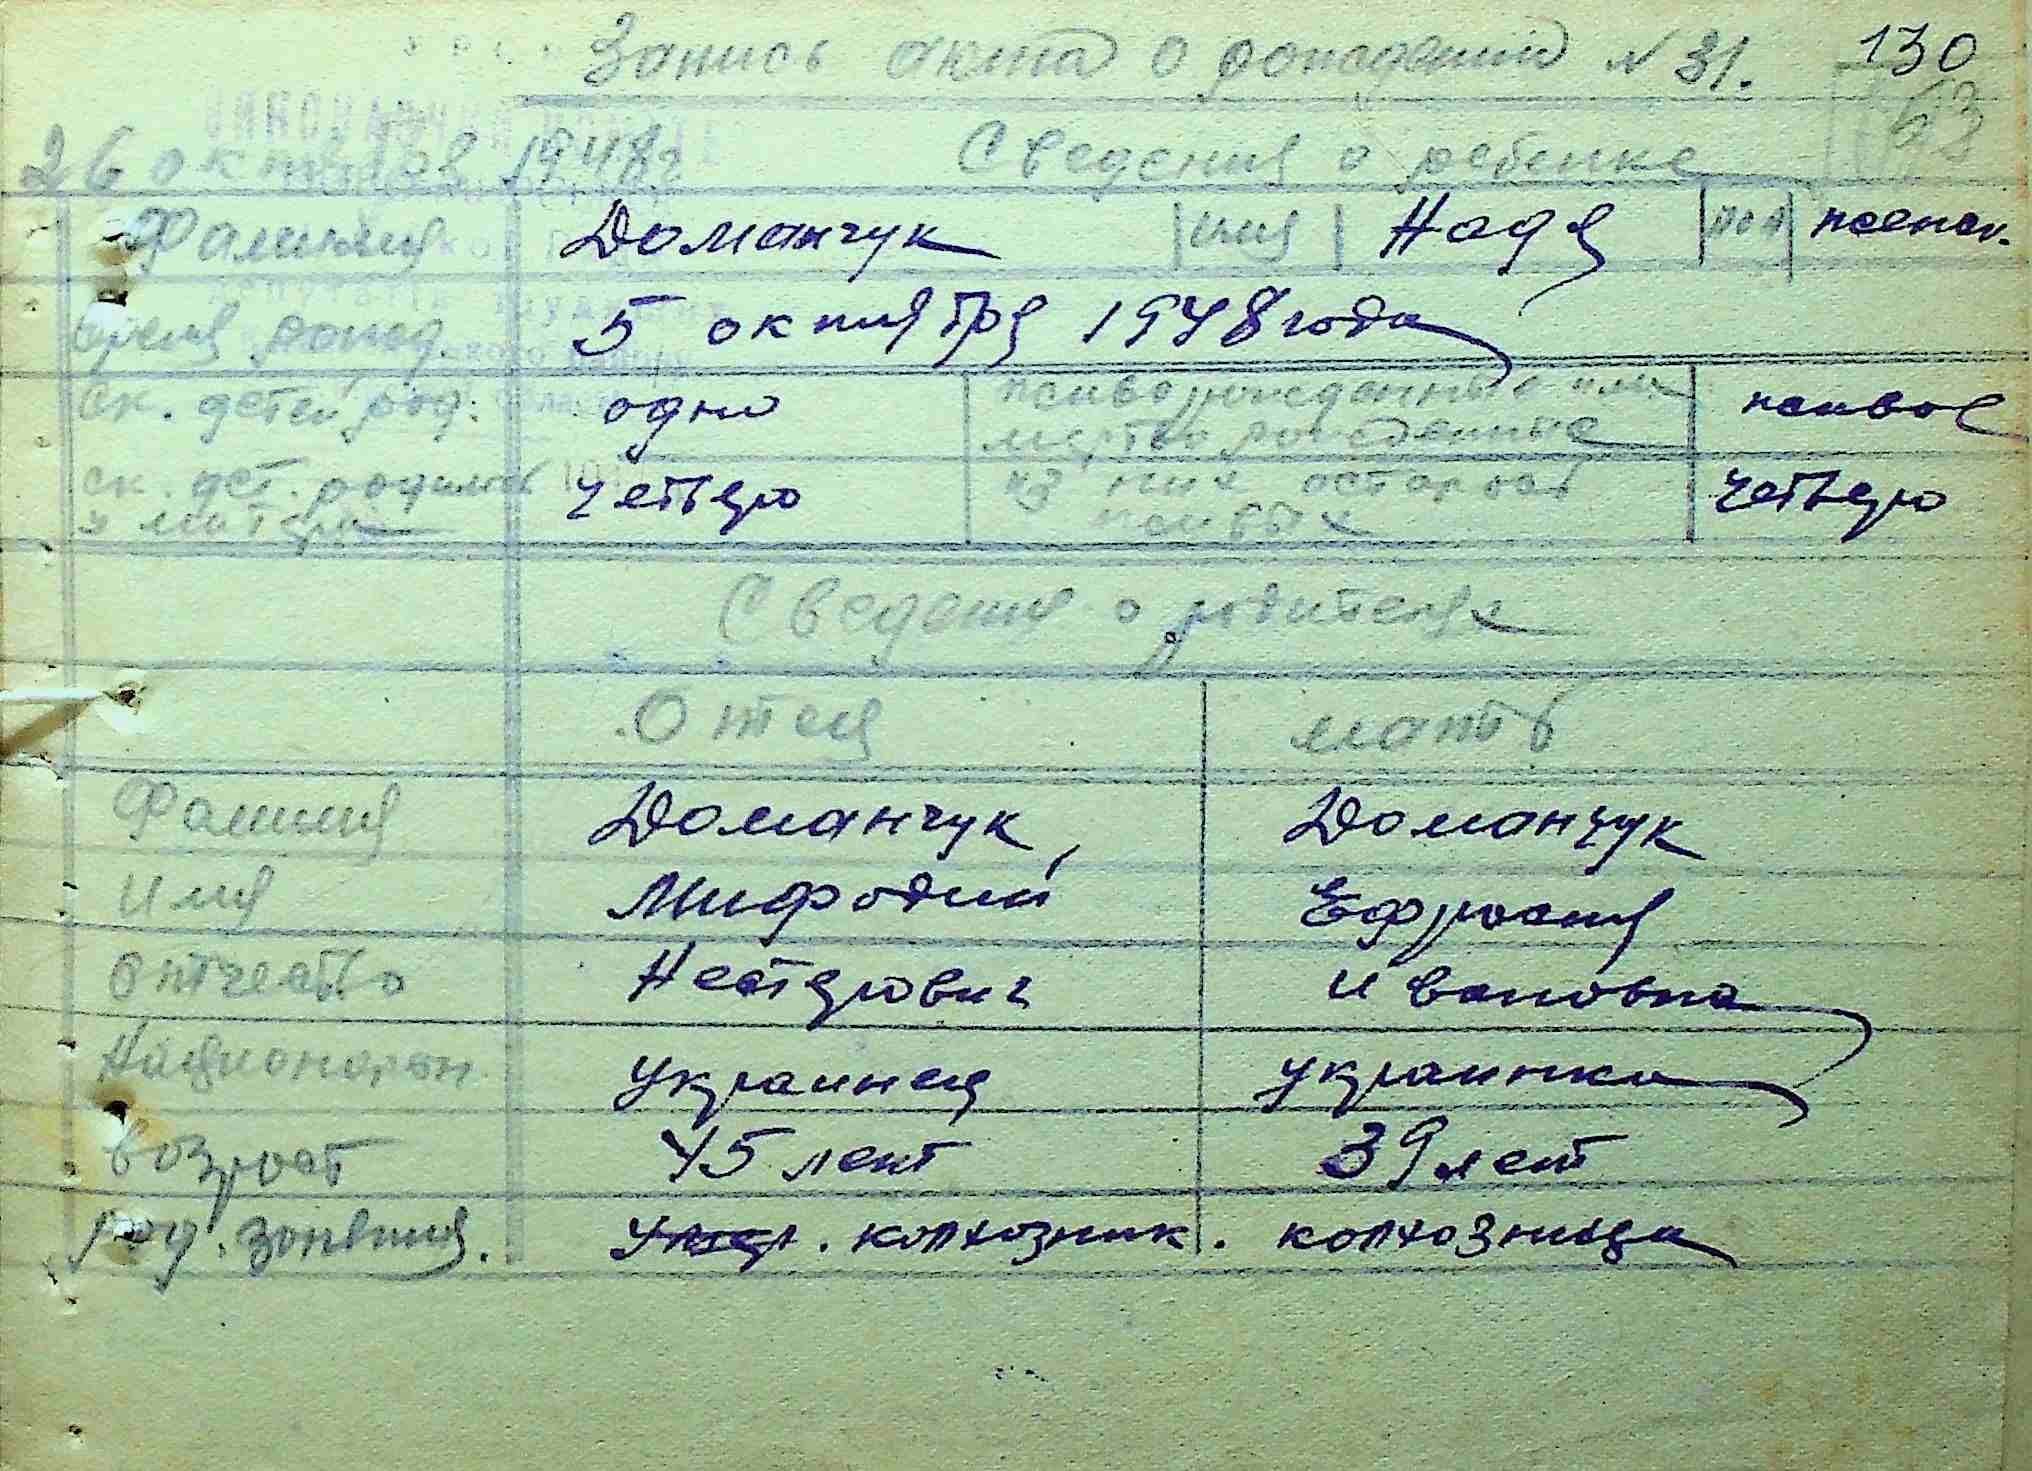 Запись акта о рождении N 31. 130
53
26 октября 1948 г Сведения о ребенке
Фамилия Доманчук имя Надя пол женск.
время рожд. 5 октября 1948 года
ск. детей род. одно живорожденные или мертворожденные живое
ск. дет. родилось у матери четверо из них осталось живых четверо
Сведения о родителях
Отец мать
Фамилия Доманчук Доманчук
Имя Мифодий Ефросия
Отчество Нестерович Ивановна
Национальн. украинец украинка
возраст 45 лет 39 лет
род. занятия. колхозник. колхозница